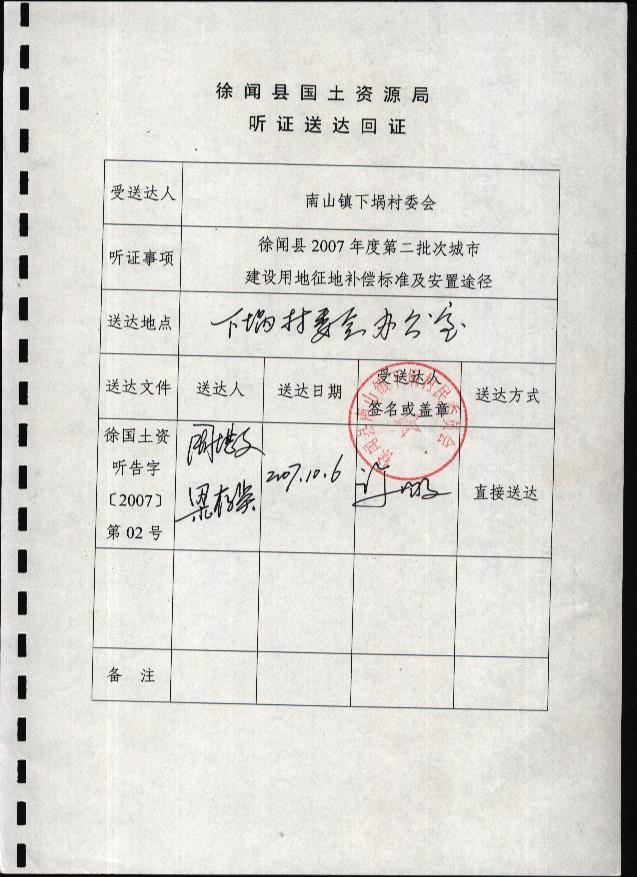 徐闻县国土资源局
听证送达回证
受送达人
南山镇下埚村委会
听证事项
徐闻县2007年度第二批次城市
建设用地征地补偿标准及安置途径
送达地点
下埚村委会办公室
送达文件
送达人
送达日期
受送达人
签名或盖章
送达方式
徐国土资
听告字
〔2007〕
第02号
2007.10.6
直接送达
备 注